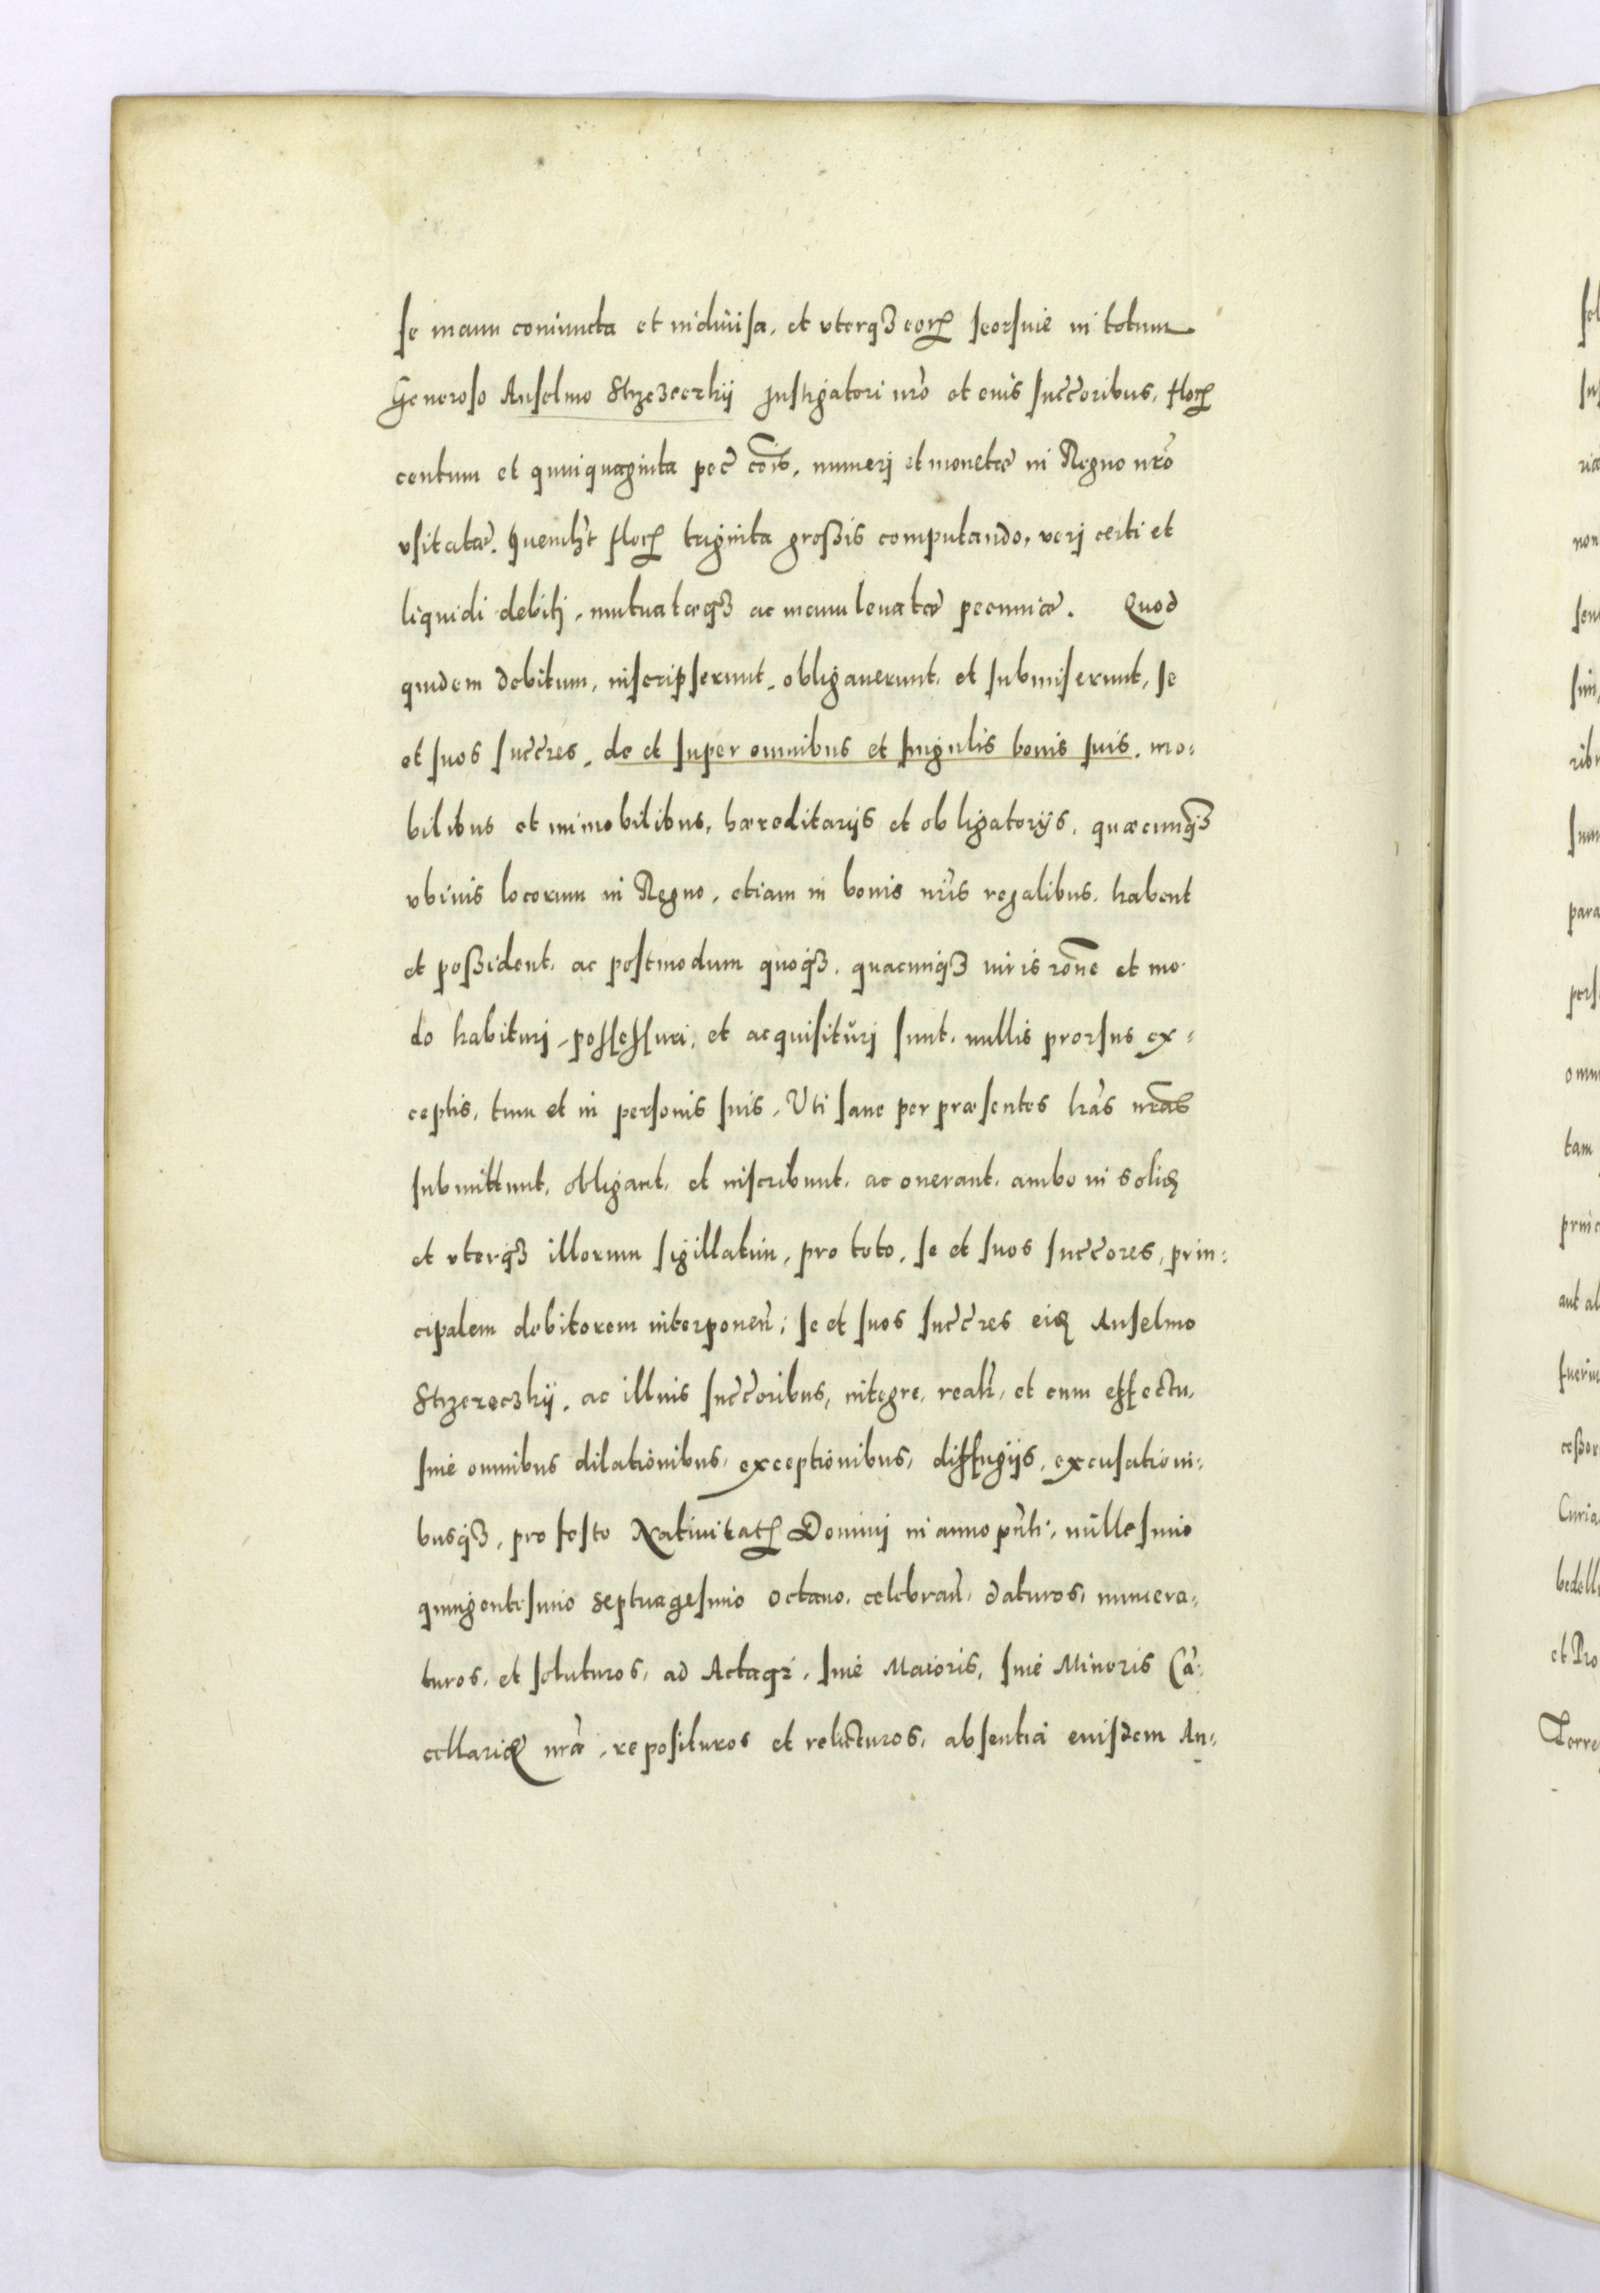 se manu coniuncta et indiuisa, et vterq3 eorꝝ seorsiue in totum
Generoso Anselmo Strzeżeczkÿ Instigatori nr̃o et eius succ̃oribus, florꝝ
centum et quinquaginta pec̃ co͠is, numerj et monetæ in Regno nr̃o
vsitatæ. Quemlꝫt florꝝ triginta großis computando, verj certi et
liquidi debitj, mutuatæq3 ac manu leuatæ pecuniæ. Quod
quidem debitum, inscripserunt, obligauerunt, et submiserunt, se
et suos succr̃es, de et super omnibus et singulis bonis suis, mo:
bilibus et immobilibus, hæreditarijs et obligatorijs, quæcunq3
vbiuis locorum in Regno, etiam in bonis nr̃is regalibus, habent
et poßident, ac postmodum quoq3, quacunq3 iuris ro͠ne et mo
do habiturj, possessuri, et acquisitŭrj sunt, nullis prorsus ex:
ceptis, tum et in personis suis, Uti sane per præsentes lr̃as nr̃as
submittunt, obligant, et inscribunt, ac onerant, ambo in solidꝫ
et vterq3 illorum sigillatim, pro toto, se et suos succ̃ores, prin:
cipalem debitorem interponen̄; se et suos succr̃es eidꝫ Anselmo
Strzezeczkÿ, ac illius succ̃oribus, integre, realr̃, et cum effectu,
sine omnibus dilationibus, exceptionibus, diffugijs, excusationi:
busq3, pro festo Natiuitatꝭ Dominj in anno pn̄ti, millesimo
quingentesimo septuagesimo octauo, celebran̄, daturos, numera:
turos, et soluturos, ad Actaqꝫ, siue Maioris, siue Minoris Cā:
cellariæ nr̃æ, reposituros et relicturos, absentia eiusdem An: